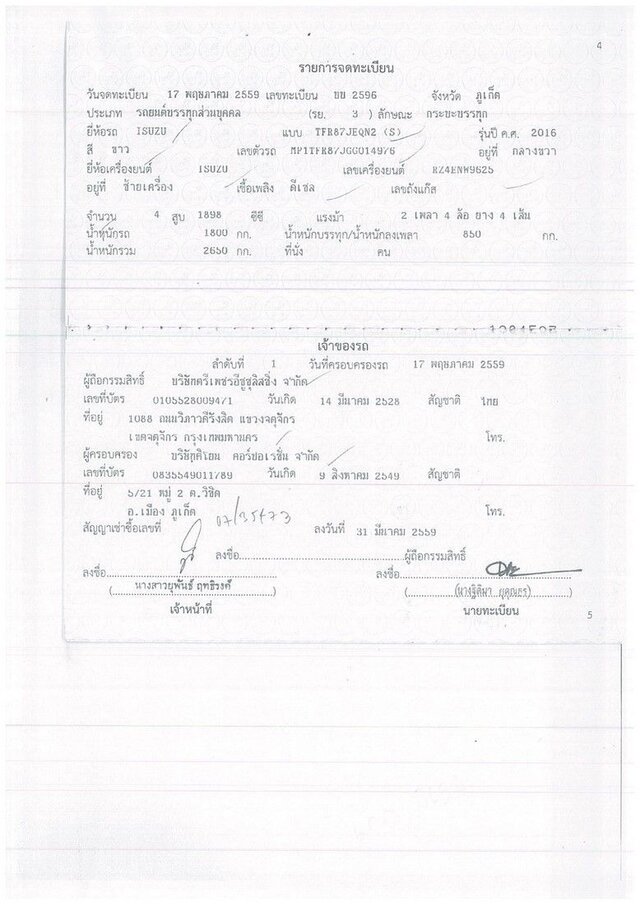 4
รายการจดทะเบียน
วันจดทะเบียน 17 พฤษภาคม 2559 เลขทะเบียน บข 2596 จังหวัด ภูเก็ต
ประเภท รถยนต์บรรทุกส่วนบุคคล (รย. 3 ) ลักษณะ กระบะบรรทุก
ยี่ห้อรถ ISUZU แบบ TFR87JEQN2 (S) รุ่นปี ค.ศ. 2016
สี ขาว เลขตัวรถ MP1TFR87JGG014976 อยู่ที่ กลางขวา
ยี่ห้อเครื่องยนต์ ISUZU เลขเครื่องยนต์ RZ4ENW9625
อยู่ที่ ซ้ายเครื่อง เชื้อเพลิง ดีเซล เลขถังแก๊ส
จำนวน 4 สูบ 1898 ซีซี แรงม้า 2 เพลา 4 ล้อ ยาง 4 เส้น
น้ำหนักรถ 1800 กก. น้ำหนักบรรทุก/น้ำหนักลงเพลา 850 กก.
น้ำหนักรวม 2650 กก. ที่นั่ง คน
เจ้าของรถ
ลำดับที่ 1 วันที่ครอบครองรถ 17 พฤษภาคม 2559
ผู้ถือกรรมสิทธิ์ บริษัทตรีเพชรอีซูซุลิสซิ่ง จำกัด
เลขที่บัตร 0105528009471 วันเกิด 14 มีนาคม 2528 สัญชาติ ไทย
ที่อยู่ 1088 ถนนวิภาวดีรังสิต แขวงจตุจักร
เขตจตุจักร กรุงเทพมหานคร โทร.
ผู้ครอบครอง บริษัทคิโยน คอร์ปอเรชั่น จำกัด
เลขที่บัตร 0835549011789 วันเกิด 9 สิงหาคม 2549 สัญชาติ
ที่อยู่ 5/21 หมู่ 2 ต.วิชิต
อ.เมือง ภูเก็ต โทร.
สัญญาเช่าซื้อเลขที่ 07/35473 ลงวันที่ 31 มีนาคม 2559
ลงชื่อ ผู้ถือกรรมสิทธิ์
ลงชื่อ ลงชื่อ
(นางสาวยุพันธ์ ฤทธิรงค์) (นางฐิติมา)
เจ้าหน้าที่ นายทะเบียน
5